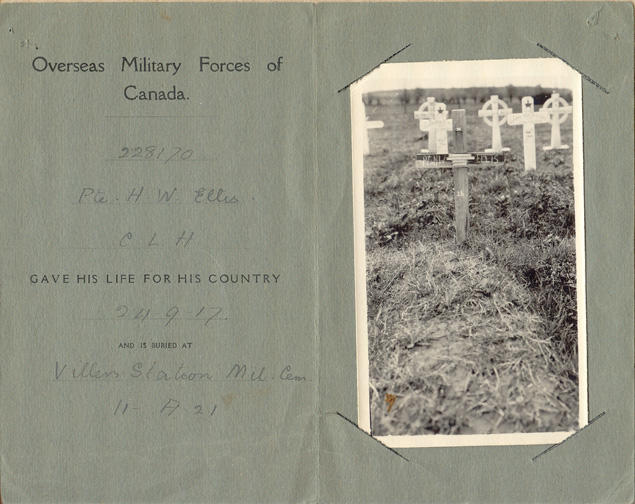 Overseas Military Forces of
Canada.
228170
Pte. H. W. Ellis.
C L H
GAVE HIS LIFE FOR HIS COUNTRY
24-9-17.
AND IS BURIED AT
Villers Station Mil. Cem
11- A 21
ELLIS